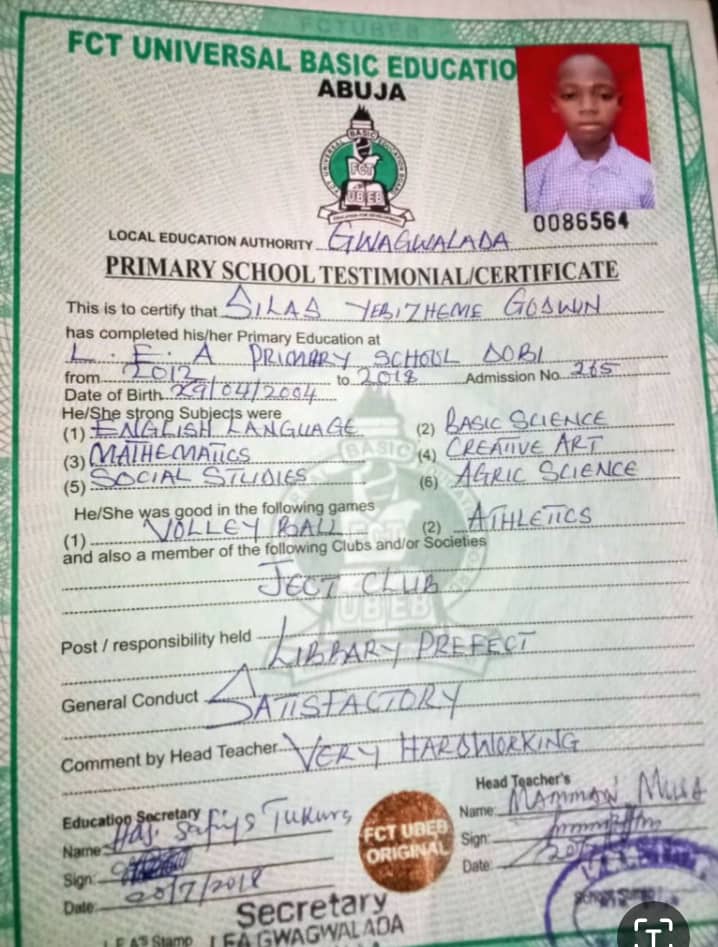 FCTUBEB
FCT UNIVERSAL BASIC EDUCATIO
ABUJA
UNIVERSAL BASIC EDUCATION BOARD
FCT
UBEB
EDUCATION FOR DEVELOPMENT
0086564
LOCAL EDUCATION AUTHORITY GWAGWALADA
PRIMARY SCHOOL TESTIMONIAL/CERTIFICATE
This is to certify that SILAS YEBIZHEME GODWIN
has completed his/her Primary Education at
L.E.A PRIMARY SCHOOL DOBI
from 2012 to 2018 Admission No. 265
Date of Birth 29/04/2004
He/She strong Subjects were
(1) ENGLISH LANGUAGE (2) BASIC SCIENCE
(3) MATHEMATICS (4) CREATIVE ART
(5) SOCIAL STUDIES (6) AGRIC SCIENCE
He/She was good in the following games
(1) VOLLEY BALL (2) ATHLETICS
and also a member of the following Clubs and/or Societies
JECT CLUB
Post / responsibility held LIBRARY PREFECT
General Conduct SATISFACTORY
Comment by Head Teacher VERY HARDWORKING
Education Secretary
Name: Haj. Safiya Tukura
Sign:
Date: 20/7/2018
FCT UBEB
ORIGINAL
Head Teacher's
Name: MAMMAN MUSA
Sign:
Date:
Secretary
L.E.A'S Stamp LEA GWAGWALADA
School Stamp